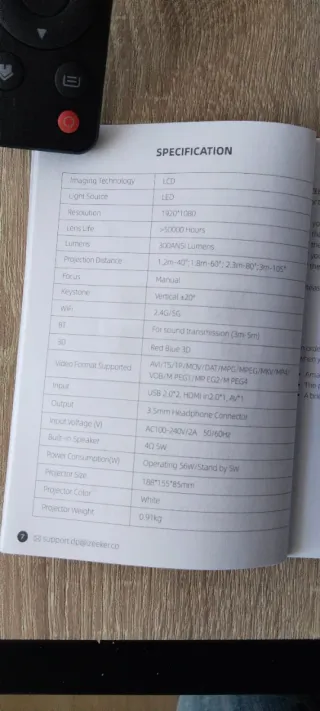 SPECIFICATION
Imaging Technology LCD
Light Source LED
Resolution 1920*1080
Lens Life >50000 Hours
Lumens 300ANSI Lumens
Projection Distance 1.2m-40"; 1.8m-60"; 2.3m-80"; 3m-105"
Focus Manual
Keystone Vertical ±20°
WiFi 2.4G/5G
BT For sound transmission (3m-5m)
3D Red Blue 3D
Video Format Supported AVI/TS/ /MOV/DAT/MPG/MPEG/MKV/MP4/
VOB/M PEG1/MP EG2/M PEG4
Input USB 2.0*2, HDMI in2.0*1, AV*1
Output 3.5mm Headphone Connector
Input Voltage (V) AC100-240V/2A 50/60Hz
Built-in Speaker 4Ω 5W
Power Consumption(W) Operating 56W/Stand by 5W
Projector Size 188*155*85mm
Projector Color White
Projector Weight 0.91kg
7 support.dp@izeeker.co